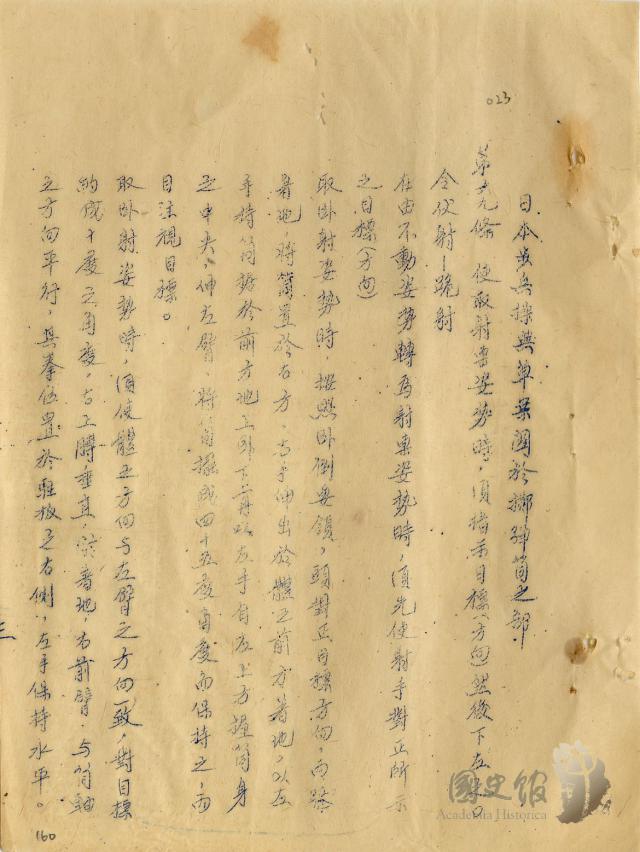 023
日本步兵操典草案關於擲彈筒之部
第九條 使取射擊姿勢時，須指示目標（方向）然後下左
令伏射—跪射
在由不動姿勢轉為射擊姿勢時，須先使射手對正所示
之目標（方向）
取臥射姿勢時，按照臥倒要領，頭對正目標方向，兩
着地，將筒置於右方，右手伸出於體之前方着地，以左
手持筒 於前方地上臥下，再以左手自左上方握筒身
之中央，伸左臂，將筒 成四十五度角度而保持之，而
目注視目標。
取臥射姿勢時，須使體之方向與左臂之方向一致，對目標
約成十度之角度，右上膊垂直，肘着地，右前臂，與筒軸
之方向平行，其拳位置於駐板之右側，左手保持水平。
三
160
國史館
Academia Historica